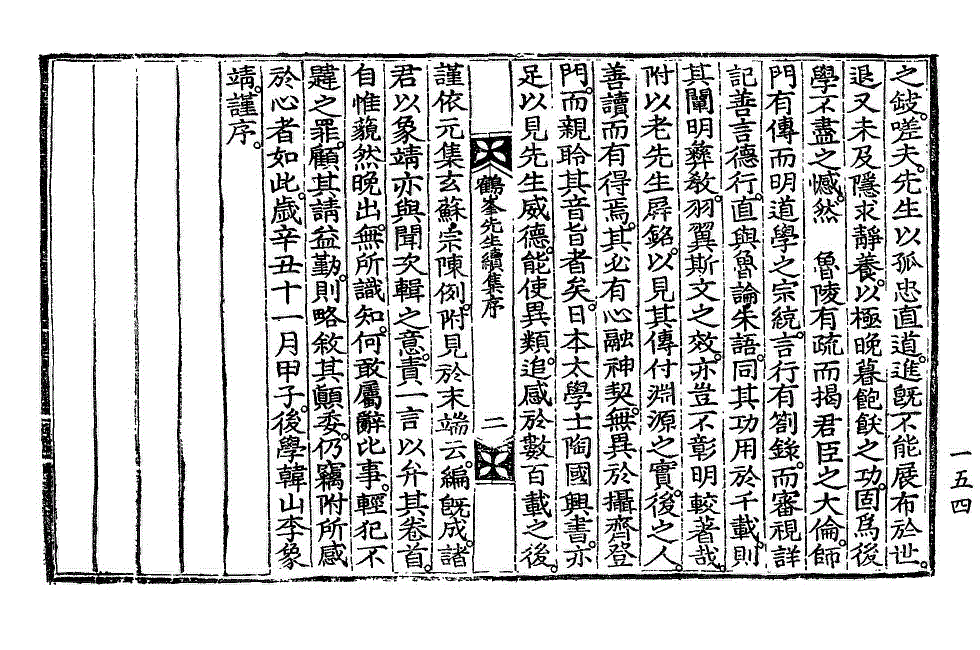 之鼓嗟夫。先生以孤忠直道。進旣不能展布於世。
退又未及隱求靜養。以極晚暮飽飫之功。固爲後
學不盡之憾。然　魯陵有疏而揭君臣之大倫。師
門有傳而明道學之宗統。言行有劄錄。而審視詳
記善言德行。直與魯論朱語。同其功用於千載。則
其闡明彝敎。羽翼斯文之效。亦豈不彰明較著哉。
附以老先生屛銘。以見其傳付淵源之實。後之人。
善讀而有得焉。其必有心融神契。無異於攝齊登
門。而親聆其音旨者矣。日本太學士陶國興書。亦
足以見先生威德。能使異類。追感於數百載之後
鶴峯先生續集序
二
謹依元集玄蘇宗陳例。附見於末端云。編旣成。諸
君以象靖亦與聞次輯之意。責一言以弁其卷首。
自惟藐然晚出。無所識知。何敢屬辭比事。輕犯不
韙之罪。顧其請益勤。則略敘其顚委。仍竊附所感
於心者如此。歲辛丑十一月甲子。後學韓山李象
靖。謹序。
一五四